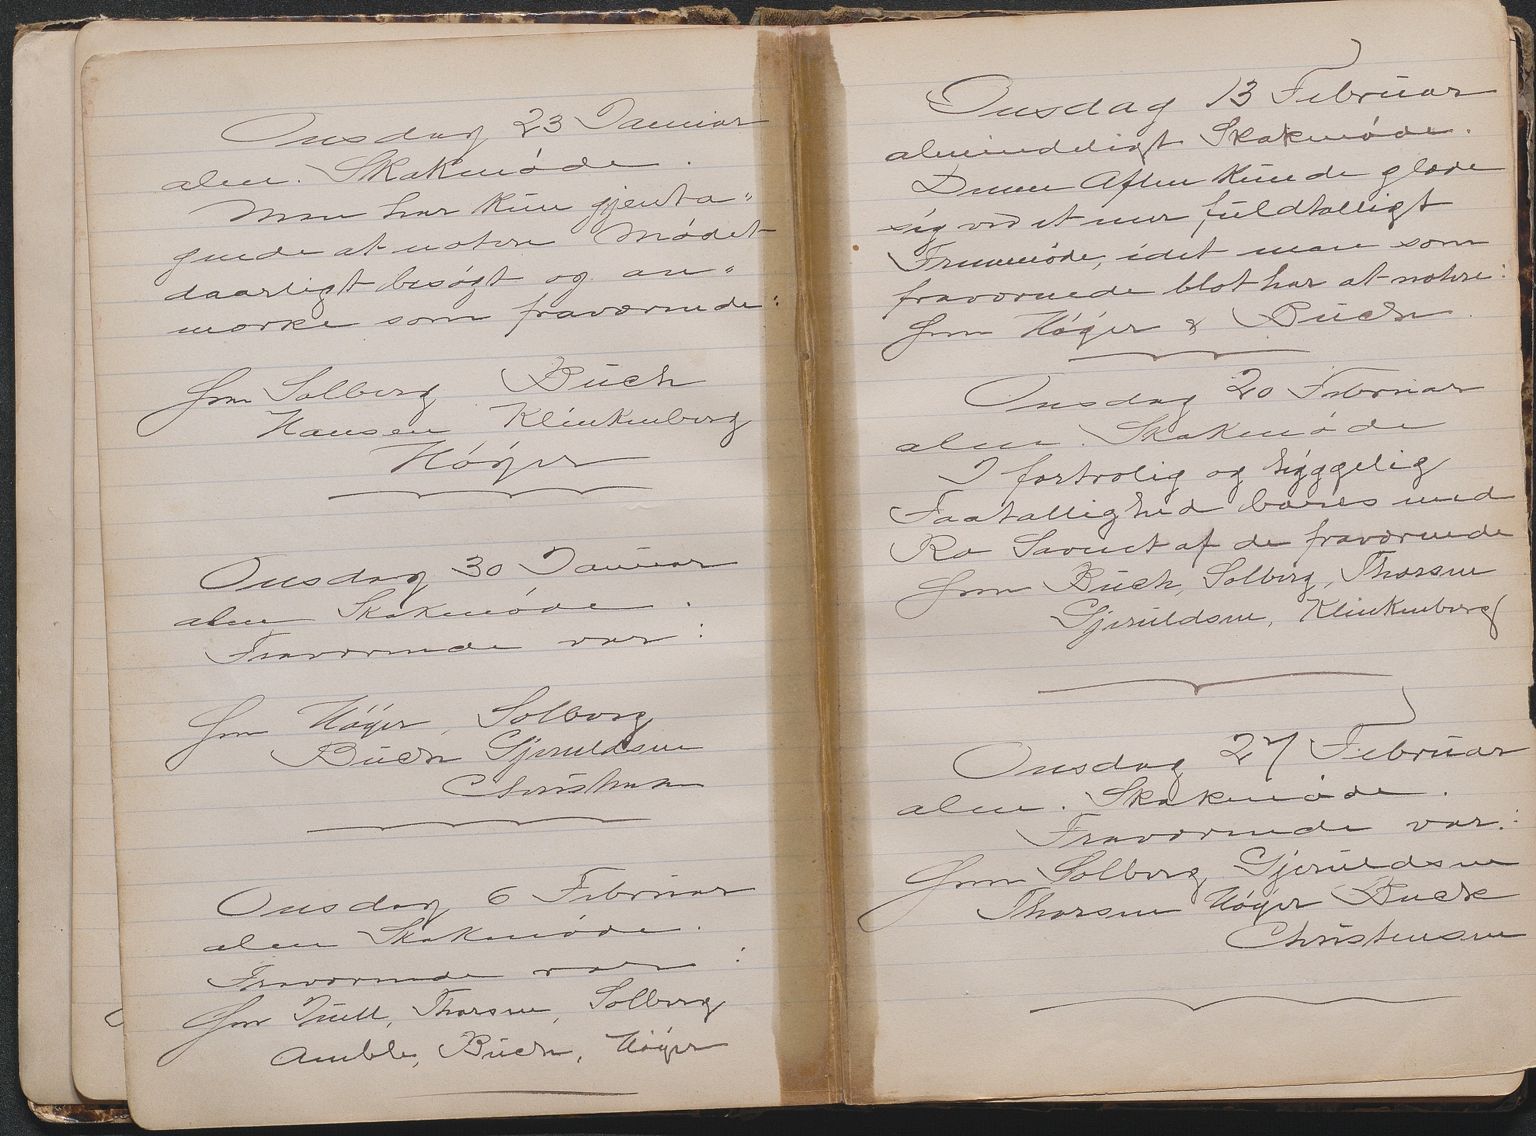 Onsdag 23 Januar
alm. Skakmøde.
Man har kun gjenta"
gende at notere Mødet
daarligt besøgt og an"
mærke som fraværende:
Hrr Solberg Buch
Hansen Klinkenberg
Höyer
Onsdag 30 Januar
alm Skakmøde.
Fraværende var:
Hrr Höyer, Solberg
Buch Gjeruldsen
Christensen
Onsdag 6 Februar
alm Skakmøde.
Fraværende var:
Hrr Juell, Thorsen, Solberg
Amble, Buch, Höyer
Onsdag 13 Februar
almindeligt Skakmøde.
Denne Aften kunde glæde
sig ved et mer fuldtalligt
Fremmøde, idet man som
fraværende blot har at notere:
Hrr Höyer & Buch.
Onsdag 20 Februar
alm. Skakmøde
I fortrolig og hyggelig
Faatallighed bæres med
Ro Savnet af de fraværende
Hrr Buch, Solberg, Thorsen
Gjeruldsen, Klinkenberg
Onsdag 27 Februar
alm. Skakmøde.
Fraværende var:
Hrr Solberg Gjeruldsen
Thorsen Höyer Buck
Christensen